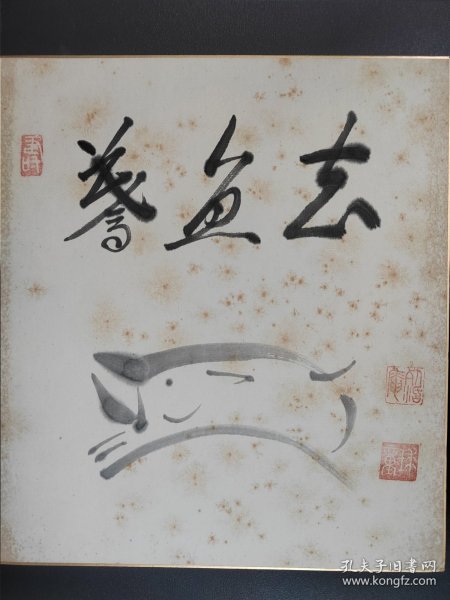 驀直去
孔夫子旧书网
www.kongfz.com